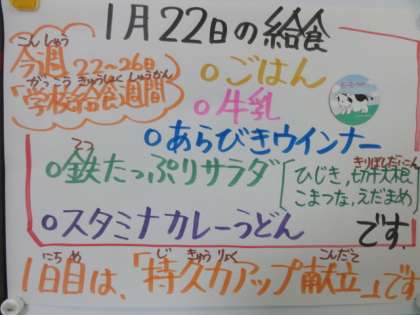 1月22日の給食
こんしゅう
今週22～26日
がっこうきゅうしょくしゅうかん
「学校給食週間」
○ごはん
○牛乳
○あらびきウインナー
てつ
○鉄たっぷりサラダ
きりぼしだいこん
ひじき,切干大根
こまつな,えだまめ
○スタミナカレーうどん
です。
にちめ じきゅうりょく こんだて
1日目は、「持久力アップ献立」です